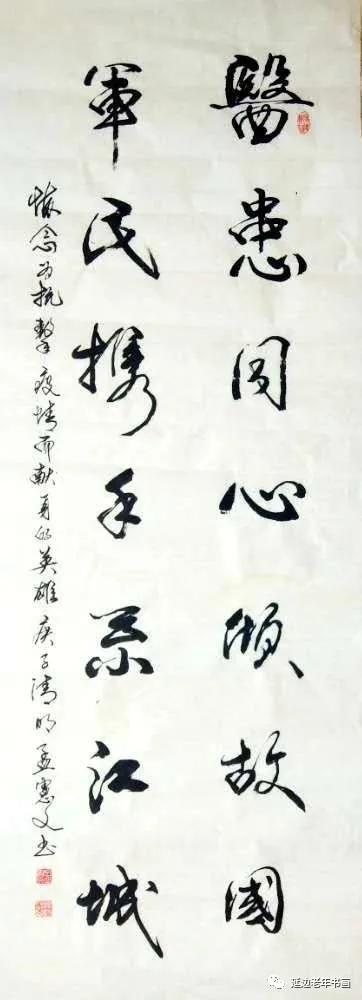 醫患同心傾故國
軍民携手築江城
懷念为抗擊疫情而献身的英雄 庚子清明 孟憲文书
延边老年书画